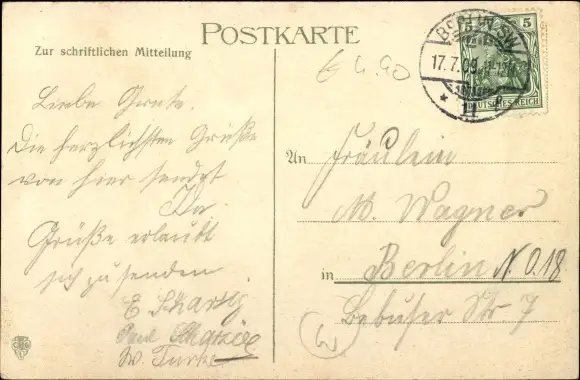 POSTKARTE
Zur schriftlichen Mitteilung
Liebe Grete.
Die herzlichsten Grüße
von hier sendet
Ida.
Grüße erlaubt
sich zu senden
E
Paul
W.
6 4.90
BERLIN SW
17.7.09
11
5
DEUTSCHES REICH
An Fräulein
M. Wagner
in Berlin N.O.18
Lebuser Str. 7